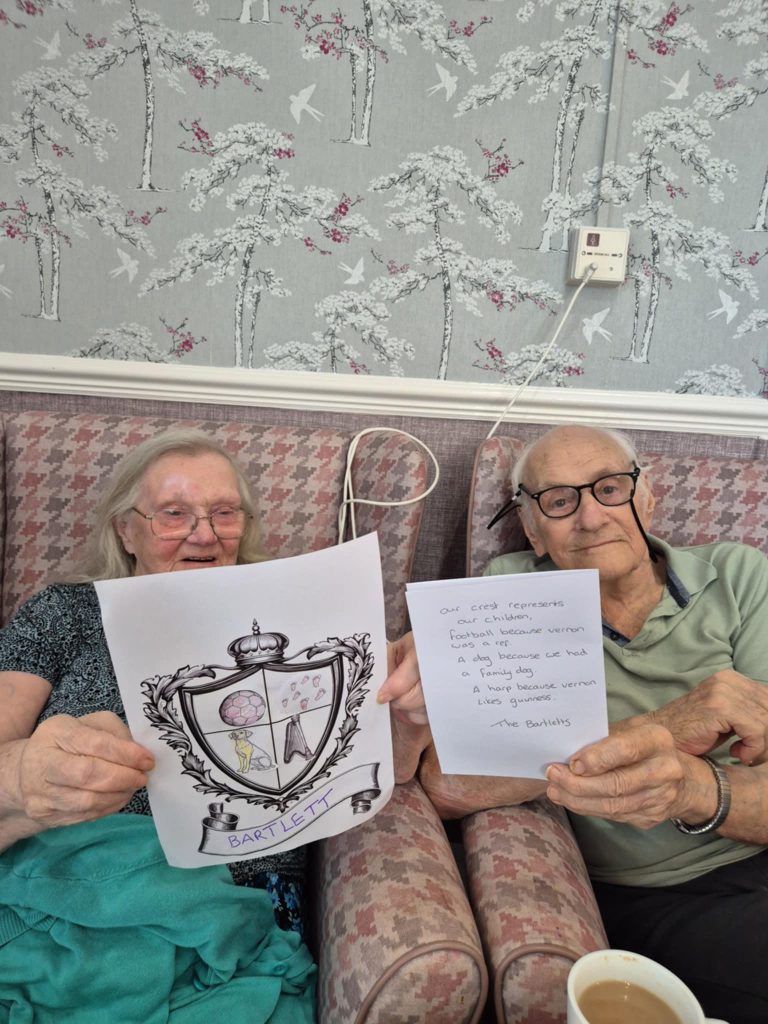 BARTLETT
our crest represents
our children,
football because vernon
was a ref.
A dog because we had
a family dog
A harp because vernon
likes guiness.
The Bartletts